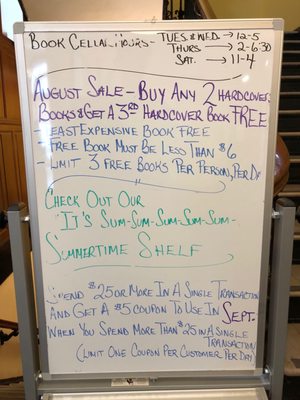 Book Cellar Hours - Tues. & Wed. → 12-5
Thurs → 2-6:30
Sat. → 11-4
August Sale - Buy Any 2 Hardcover
Books & Get A 3rd Hardcover Book FREE
- Least Expensive Book Free
- Free Book Must Be Less Than $6
- Limit 3 Free Books Per Person, Per Day
Check Out Our
"It's Sum-Sum-Sum-Sum-Sum-
Summertime Shelf
Spend $25 or More In A Single Transaction
And Get A $5 Coupon To Use In Sept.
When You Spend More Than $25 in A Single
Transaction
(Limit One Coupon Per Customer Per Day)